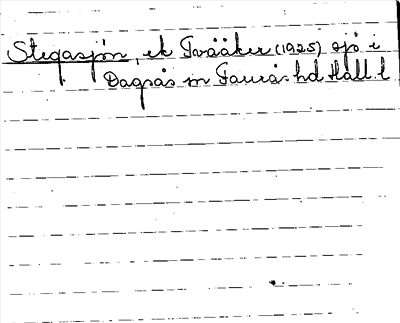 Stegasjön, ek Tvååker (1925) sjö i
Dagsås sn Faurås hd Hall. l